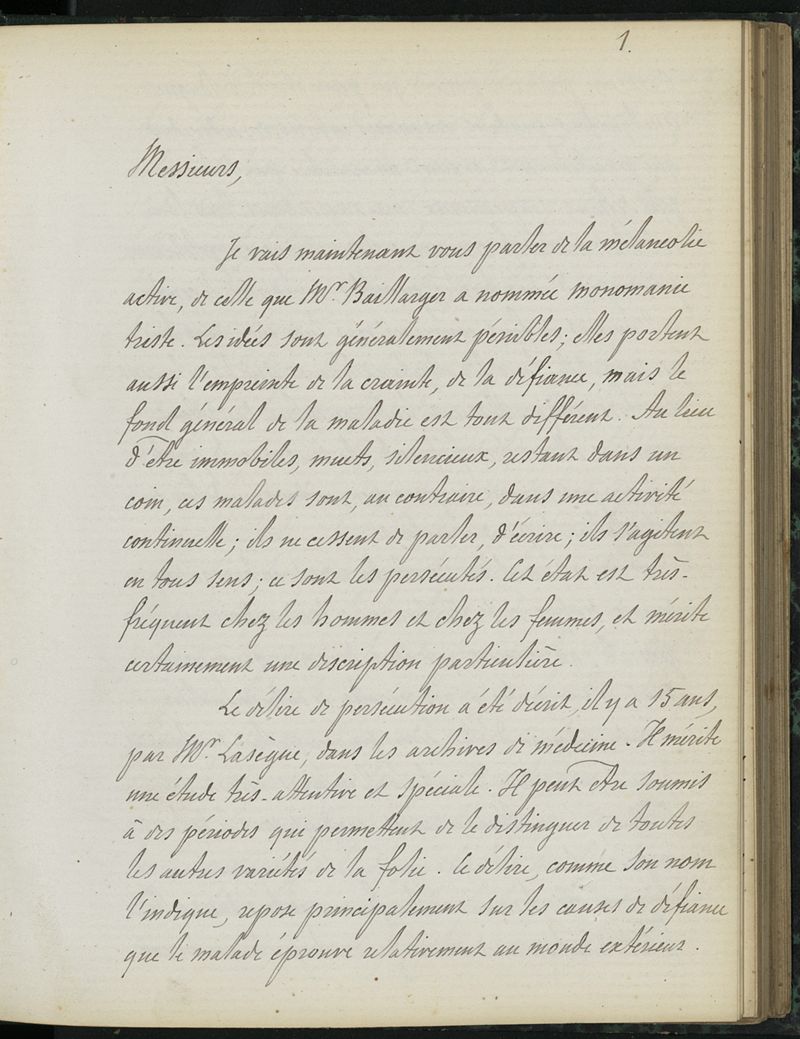 1.
Messieurs,
Je vais maintenant vous parler de la mélancolie
active, de celle que Mr. Baillarger a nommée monomanie
triste. Les idées sont généralement pénibles ; elles portent
aussi l'empreinte de la crainte, de la défiance, mais le
fond général de la maladie est tout différent. Au lieu
d'être immobiles, muets, silencieux, restant dans un
coin, ces malades sont, au contraire, dans une activité
continuelle ; ils ne cessent de parler, d'écrire ; ils s'agitent
en tous sens ; ce sont les persécutés. Cet état est très-
fréquent chez les hommes et chez les femmes, et mérite
certainement une discription particulière.
Le délire de persécution a été décrit, il y a 15 ans,
par Mr. Lasègue, dans les archives de médecine. Il mérite
une étude très-attentive et spéciale. Il peut être soumis
à des périodes qui permettent de le distinguer de toutes
les autres variétés de la folie. Ce délire, comme son nom
l'indique, repose principalement sur les causes de défiance
que le malade éprouve relativement au monde extérieur.